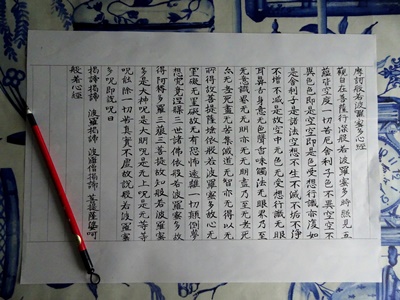 摩訶般若波羅蜜多心經
觀自在菩薩行深般若波羅蜜多時照見五
蘊皆空度一切苦厄舍利子色不異空空不
異色色即是空空即是色受想行識亦復如
是舍利子是諸法空想不生不滅不垢不淨
不增不減是故空中无色无受想行識无眼
耳鼻舌身意无色聲香味觸法无眼界乃至
无意識界无无明亦无无明盡乃至无老死
亦无老死盡无苦集滅道无智亦无得以无
所得故菩提薩埵依般若波羅蜜多故心无
罣礙无罣礙故无有恐怖遠離一切顛倒夢
想究竟涅槃三世諸佛依般若波羅蜜多故
得阿耨多羅三藐三菩提故知般若波羅蜜
多是大神呪是大明呪是无上呪是无等等
呪能除一切苦真實不虛故說般若波羅蜜
多呪即說呪曰
揭諦揭諦 波羅揭諦 波羅僧揭諦 菩提薩婆呵
般若心經